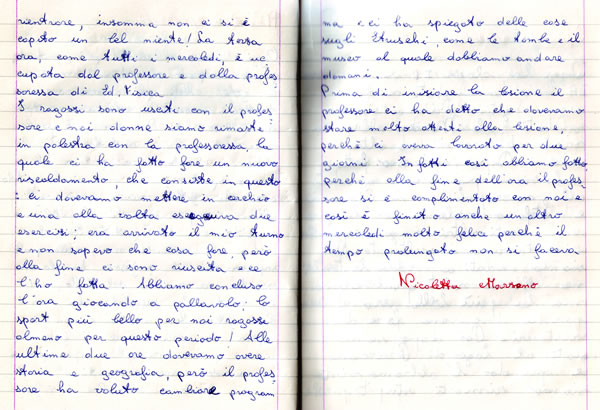 rientrare, insomma non ci si è
capito un bel niente! La terza
ora, come tutti i mercoledì, è oc
cupata dal professore e dalla profes
soressa di Ed. Fisica
I ragazzi sono usciti con il profes
sore e noi donne siamo rimaste
in palestra con la professoressa, la
quale ci ha fatto fare un nuovo
riscaldamento, che consiste in questo
: ci dovevamo mettere in cerchio
e una alla volta eseguiva due
esercizi; era arrivato il mio turno
e non sapevo che cosa fare, però
alla fine ci sono riuscita e ce
l'ho fatta. Abbiamo concluso
l'ora giocando a pallavolo: lo
sport più bello per noi ragazzi
almeno per questo periodo! Alle
ultime due ore dovevamo avere
storia e geografia, però il profes
sore ha voluto cambiare program
ma e ci ha spiegato delle cose
sugli Etruschi, come le tombe e il
museo al quale dobbiamo andare
domani.
Prima di iniziare la lezione il
professore ci ha detto che dovevamo
stare molto attenti alla lezione,
perchè ci aveva lavorato per due
giorni. Infatti così abbiamo fatto
perchè alla fine dell'ora il profes
sore si è complimentato con noi e
così è finito anche un altro
mercoledì molto felici perchè il
tempo prolungato non si faceva
Nicoletta Marsano